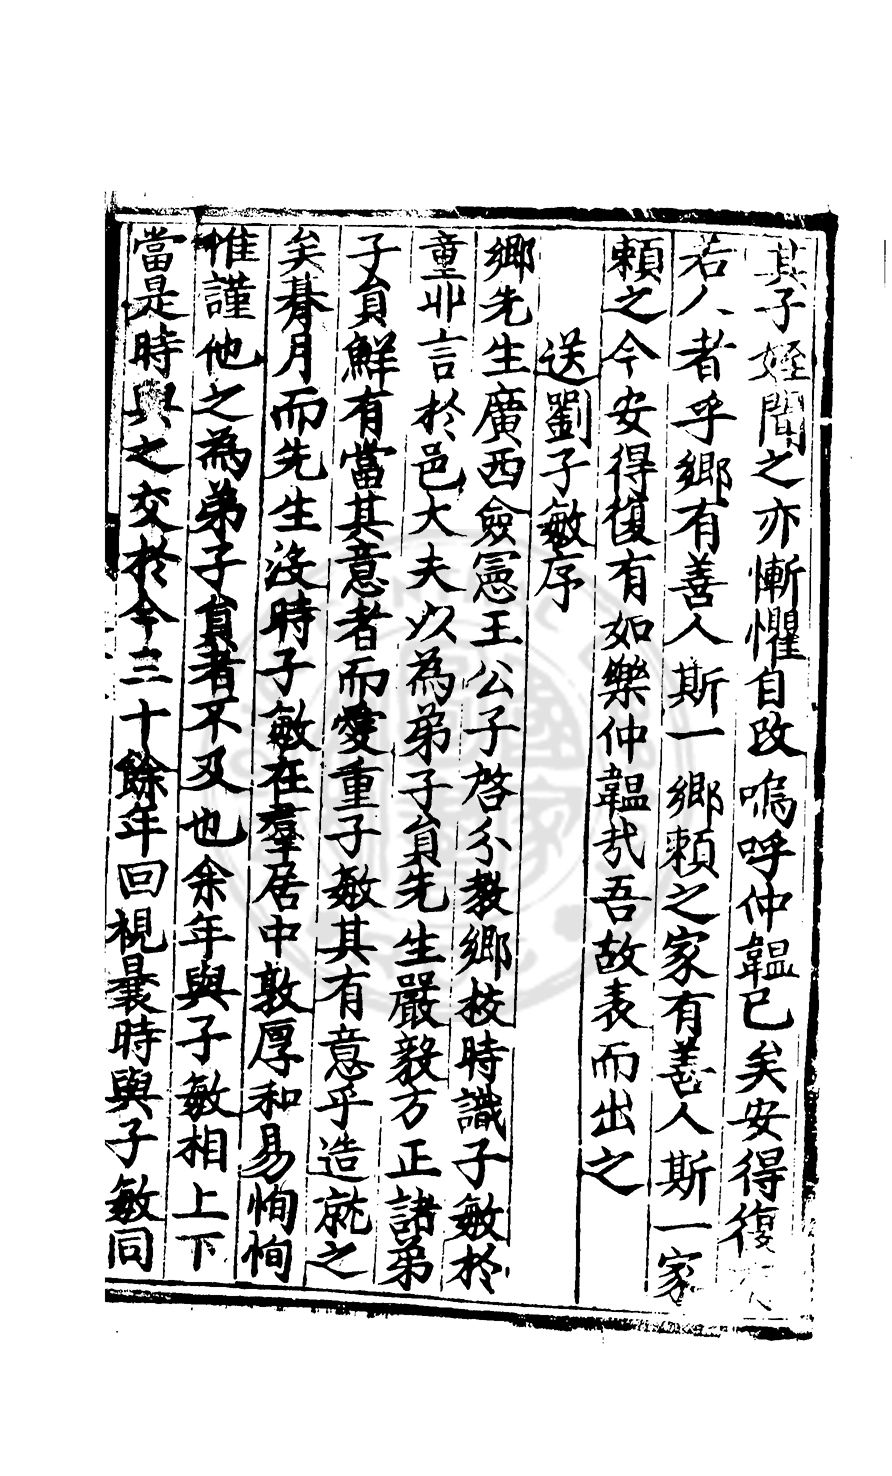 其子姪聞之亦慚懼自改嗚呼仲韞已矣安得復
若人者乎鄉有善人斯一鄉賴之家有善人斯一家
賴之今安得復有如樂仲韞㢤吾故表而出之
送劉子敏序
鄉先生廣西僉憲王公子啓分教鄉校時識子敏於
童丱言於邑大夫以為弟子員先生嚴毅方正諸弟
子員鮮有當其意者而愛重子敏其有意乎造就之
矣朞月而先生沒時子敏在羣居中敦厚和易恂恂
惟謹他之為弟子員者不及也余年與子敏相上下
當是時與之交於今三十餘年回視曩時與子敏同